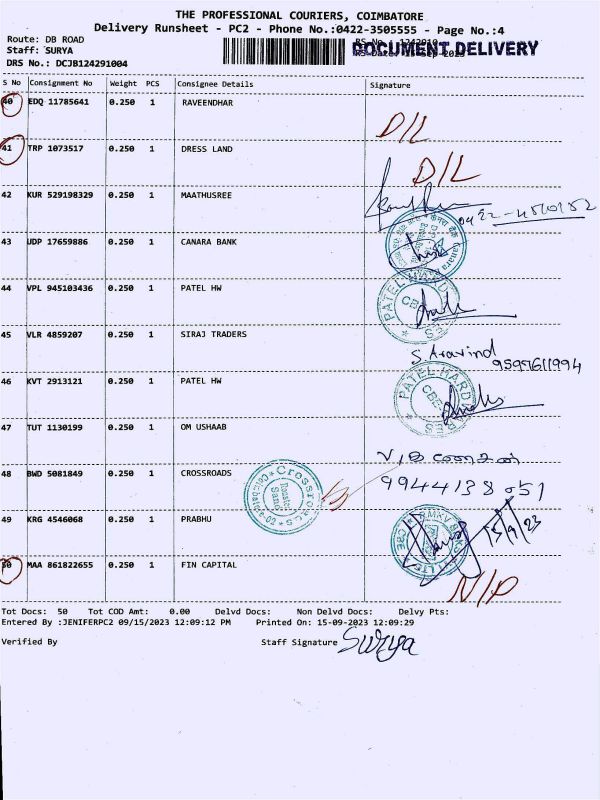 THE PROFESSIONAL COURIERS, COIMBATORE
Delivery Runsheet - PC2 - Phone No.:0422-3505555 - Page No.:4
Route: DB ROAD
Staff: SURYA
DRS No.: DCJB124291004
DOCUMENT DELIVERY
S No Consignment No Weight PCS Consignee Details Signature
40 EDQ 11785641 0.250 1 RAVEENDHAR
D/L
41 TRP 1073517 0.250 1 DRESS LAND
D/L
42 KUR 529198329 0.250 1 MAATHUSREE
43 UDP 17659886 0.250 1 CANARA BANK
44 VPL 945103436 0.250 1 PATEL HW
PATEL HARD
CBE
45 VLR 4859207 0.250 1 SIRAJ TRADERS
S. Aravind
9597611994
46 KVT 2913121 0.250 1 PATEL HW
PATEL HARD
CBE
47 TUT 1130199 0.250 1 OM USHAAB
48 BWD 5081849 0.250 1 CROSSROADS
Crossroads
9944138051
49 KRG 4546068 0.250 1 PRABHU
15/9/23
50 MAA 861822655 0.250 1 FIN CAPITAL
N/P
Tot Docs: 50 Tot COD Amt: 0.00 Delvd Docs: Non Delvd Docs: Delvy Pts:
Entered By :JENIFERPC2 09/15/2023 12:09:12 PM Printed On: 15-09-2023 12:09:29
Verified By Staff Signature Surya